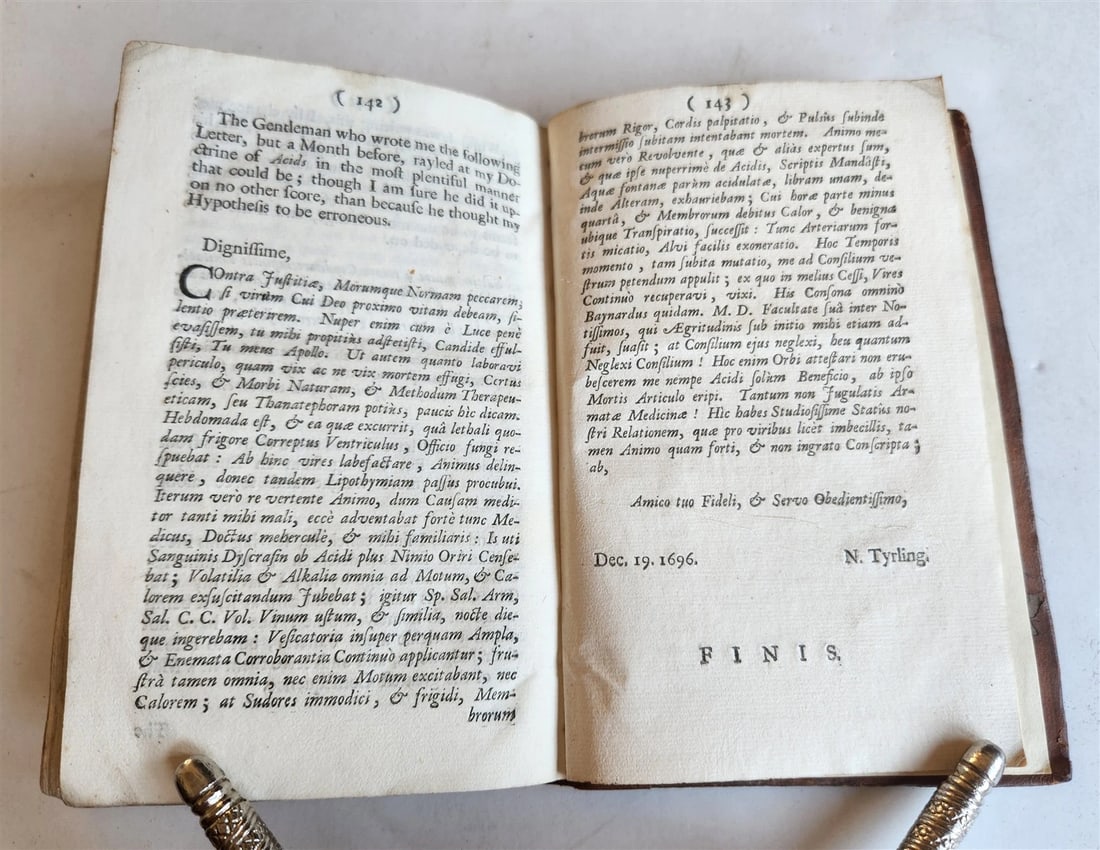 ( 142 )
The Gentleman who wrote me the following
Letter, but a Month before, rayled at my Do-
ctrine of Acids in the most plentiful manner
that could be; though I am sure he did it up-
on no other score, than because he thought my
Hypothesis to be erroneous.
Dignissime,
COntra Justitiæ, Morumque Normam peccarem,
si virum Cui Deo proximo vitam debeam, si-
lentio præterirem. Nuper enim cum è Luce penè
evasissem, tu mihi propitius adstetisti, Candide efful-
sisti, Tu meus Apollo. Ut autem quanto laboravi
periculo, quam vix ac ne vix mortem effugi, Certus
scies, & Morbi Naturam, & Methodum Therapeu-
eticam, seu Thanatephoram potiùs, paucis hìc dicam.
Hebdomada est, & ea quæ excurrit, quâ lethali quo-
dam frigore Correptus Ventriculus, Officio fungi re-
spuebat : Ab hinc vires labefactare, Animus delin-
quere, donec tandem Lipothymiam passus procubui.
Iterum verò re vertente Animo, dum Causam medi-
tor tanti mihi mali, eccè adventabat fortè tunc Me-
dicus, Doctus meherculè, & mihi familiaris : Is uti
Sanguinis Dyscrasin ob Acidi plus Nimio Oriri Cense-
bat; Volatilia & Alkalia omnia ad Motum, & Ca-
lorem exsuscitandum Jubebat; igitur Sp. Sal. Arm,
Sal. C. C. Vol. Vinum ustum, & similia, nocte die-
que ingerebam : Vesicatoria insuper perquam Ampla,
& Enemata Corroborantia Continuò applicantur; fru-
strà tamen omnia, nec enim Motum excitabant, nec
Calorem; at Sudores immodici, & frigidi, Mem-
brorum
( 143 )
brorum Rigor, Cordis palpitatio, & Pulsûs subinde
intermissio subitam intentabant mortem. Animo me-
cum verò Revolvente, quæ & aliàs expertus sum,
& quæ ipse nuperrimè de Acidis, Scriptis Mandâsti,
Aquæ fontanæ parùm acidulatæ, libram unam, de-
inde Alteram, exhauriebam; Cui horæ parte minus
quartâ, & Membrorum debitus Calor, & benigna
ubique Transpiratio, successit : Tunc Arteriarum for-
tis micatio, Alvi facilis exoneratio. Hoc Temporis
momento, tam subita mutatio, me ad Consilium ve-
strum petendum appulit; ex quo in melius Cessi, Vires
Continuò recuperavi, vixi. His Consona omnino
Baynardus quidam. M. D. Facultate suâ inter No-
tissimos, qui Ægritudinis sub initio mihi etiam ad-
fuit, suasit; at Consilium ejus neglexi, heu quantum
Neglexi Consilium! Hoc enim Orbi attestari non eru-
bescerem me nempe Acidi solùm Beneficio, ab ipso
Mortis Articulo eripi. Tantum non Jugulatis Ar-
matæ Medicinæ! Hìc habes Studiosissime Statûs no-
stri Relationem, quæ pro viribus licèt imbecillis, ta-
men Animo quam forti, & non ingrato Conscripta;
ab,
Amico tuo Fideli, & Servo Obedientissimo,
Dec. 19. 1696. N. Tyrling.
FINIS.